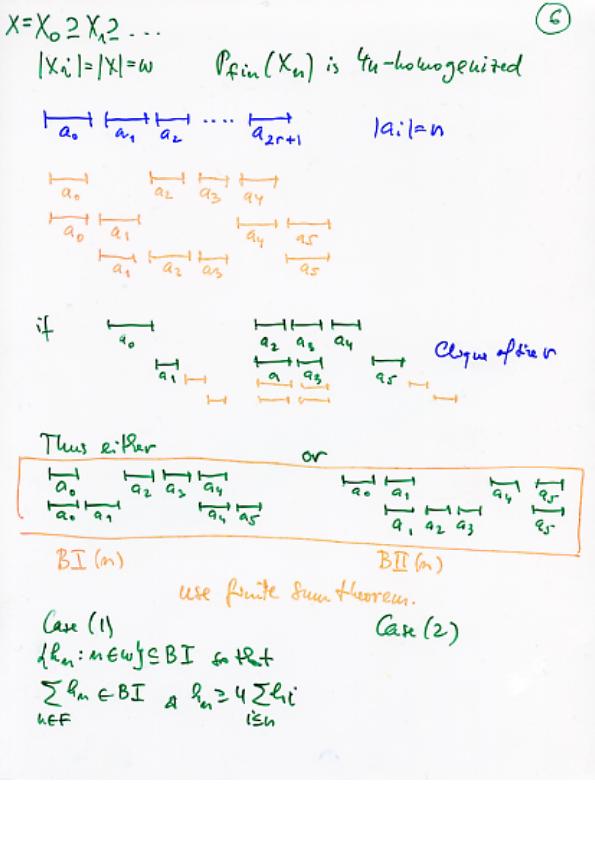 X=X₀⊇X₁⊇...
6
|Xi|=|X|=ω P_fin(Xn) is 4n-homogenized
a₀ a₁ a₂ .... a₂r+₁ |ai|=n
a₀ a₂ a₃ a₄
a₀ a₁ a₄ a₅
a₁ a₂ a₃ a₅
if a₀ a₂ a₃ a₄
Clique of size r
a₁ a a₃ a₅
Thus either or
a₀ a₂ a₃ a₄ a₀ a₁ a₄ a₅
a₀ a₁ a₄ a₅ a₁ a₂ a₃ a₅
BI(n) BII(n)
use finite sum theorem.
Case (1) Case (2)
{hn : n∈ω}⊆BI so that
∑hn∈BI & hn≥4∑hi
n∈F i≤n